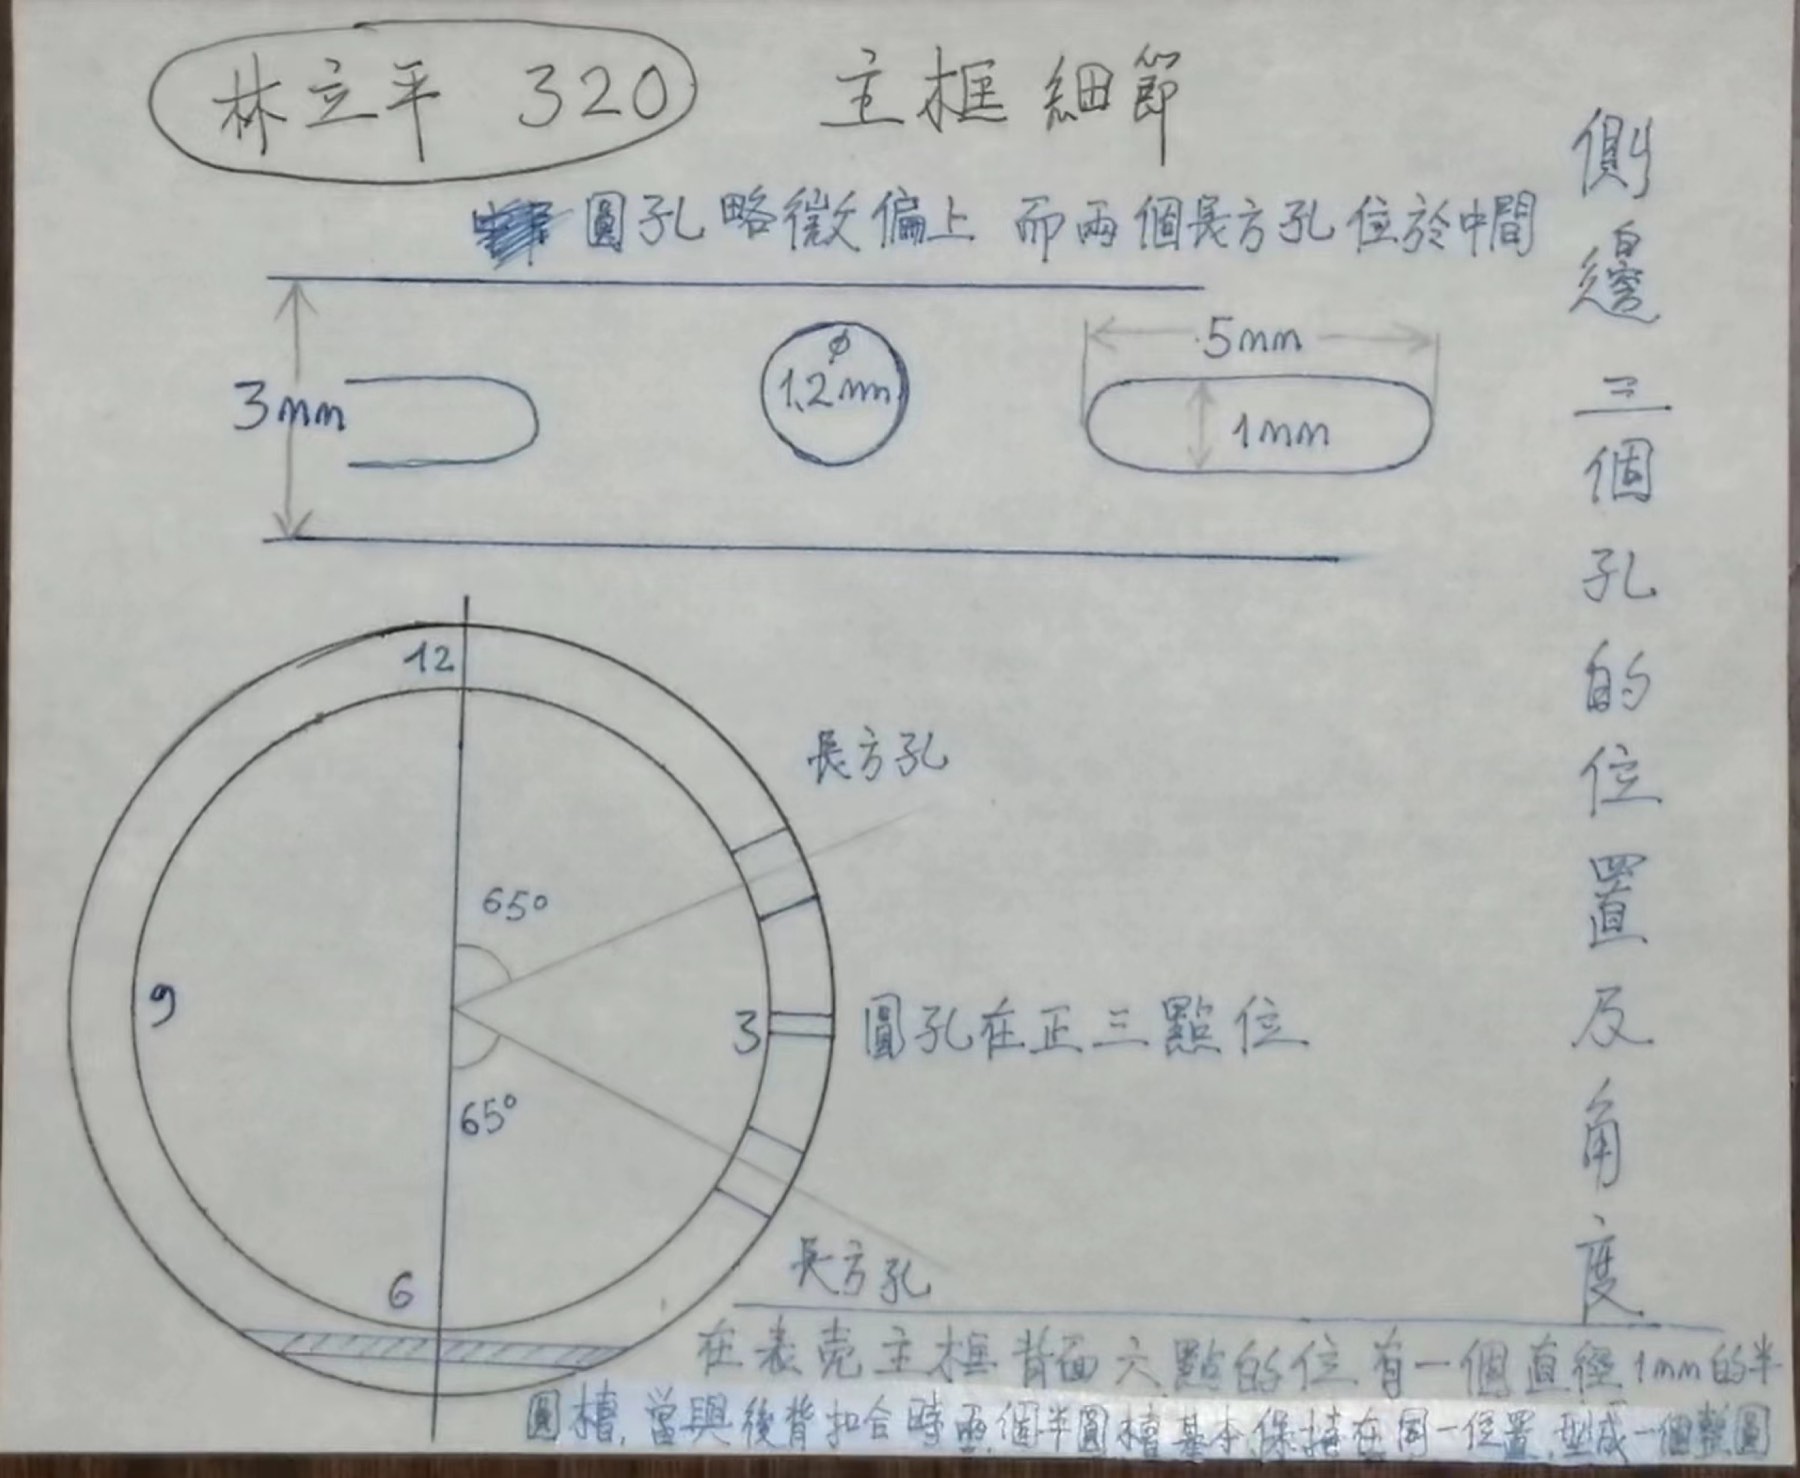 林立平 320 主框細節
圓孔略微偏上 而兩個長方孔位於中間
側邊三個孔的位置及角度
3mm
ø
1.2mm
5mm
1mm
12
長方孔
65°
9
3
圓孔在正三點位
65°
6
長方孔
在表壳主框背面六點的位有一個直徑1mm的半
圓槽,當與後背扣合時兩個半圓槽基本保持在同一位置,型成一個整圓